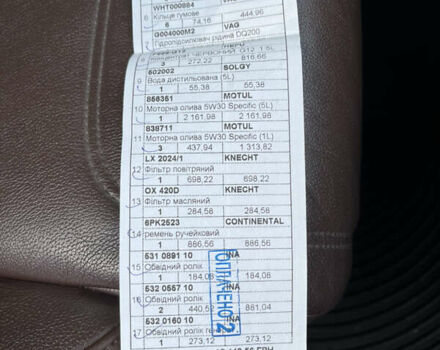 WHT000884
6 Кільце гумове
6 74,16 444,96
G004000M2 VAG
7 Гідропідсилювач рідина DQ200
концентрат ЧЕРВОНИЙ G12 1,5L
3 272,22 816,66
502002 SOLGY
9 Вода дистильована (5L)
1 55,38 55,38
858351 MOTUL
10 Моторна олива 5W30 Specific (5L)
1 2 161,98 2 161,98
838711 MOTUL
11 Моторна олива 5W30 Specific (1L)
3 437,94 1 313,82
LX 2024/1 KNECHT
12 Фільтр повітряний
1 698,22 698,22
OX 420D KNECHT
13 Фільтр масляний
1 284,58 284,58
6PK2523 CONTINENTAL
14 ремень ручейковий
1 886,56 886,56
531 0891 10 INA
15 Обвідний ролік
1 184,08 184,08
532 0557 10 INA
16 Обвідний ролік
2 440,52 881,04
532 0160 10 INA
17 Обвідний ролік
1 273,12 273,12
ОПЛАЧЕНО 2